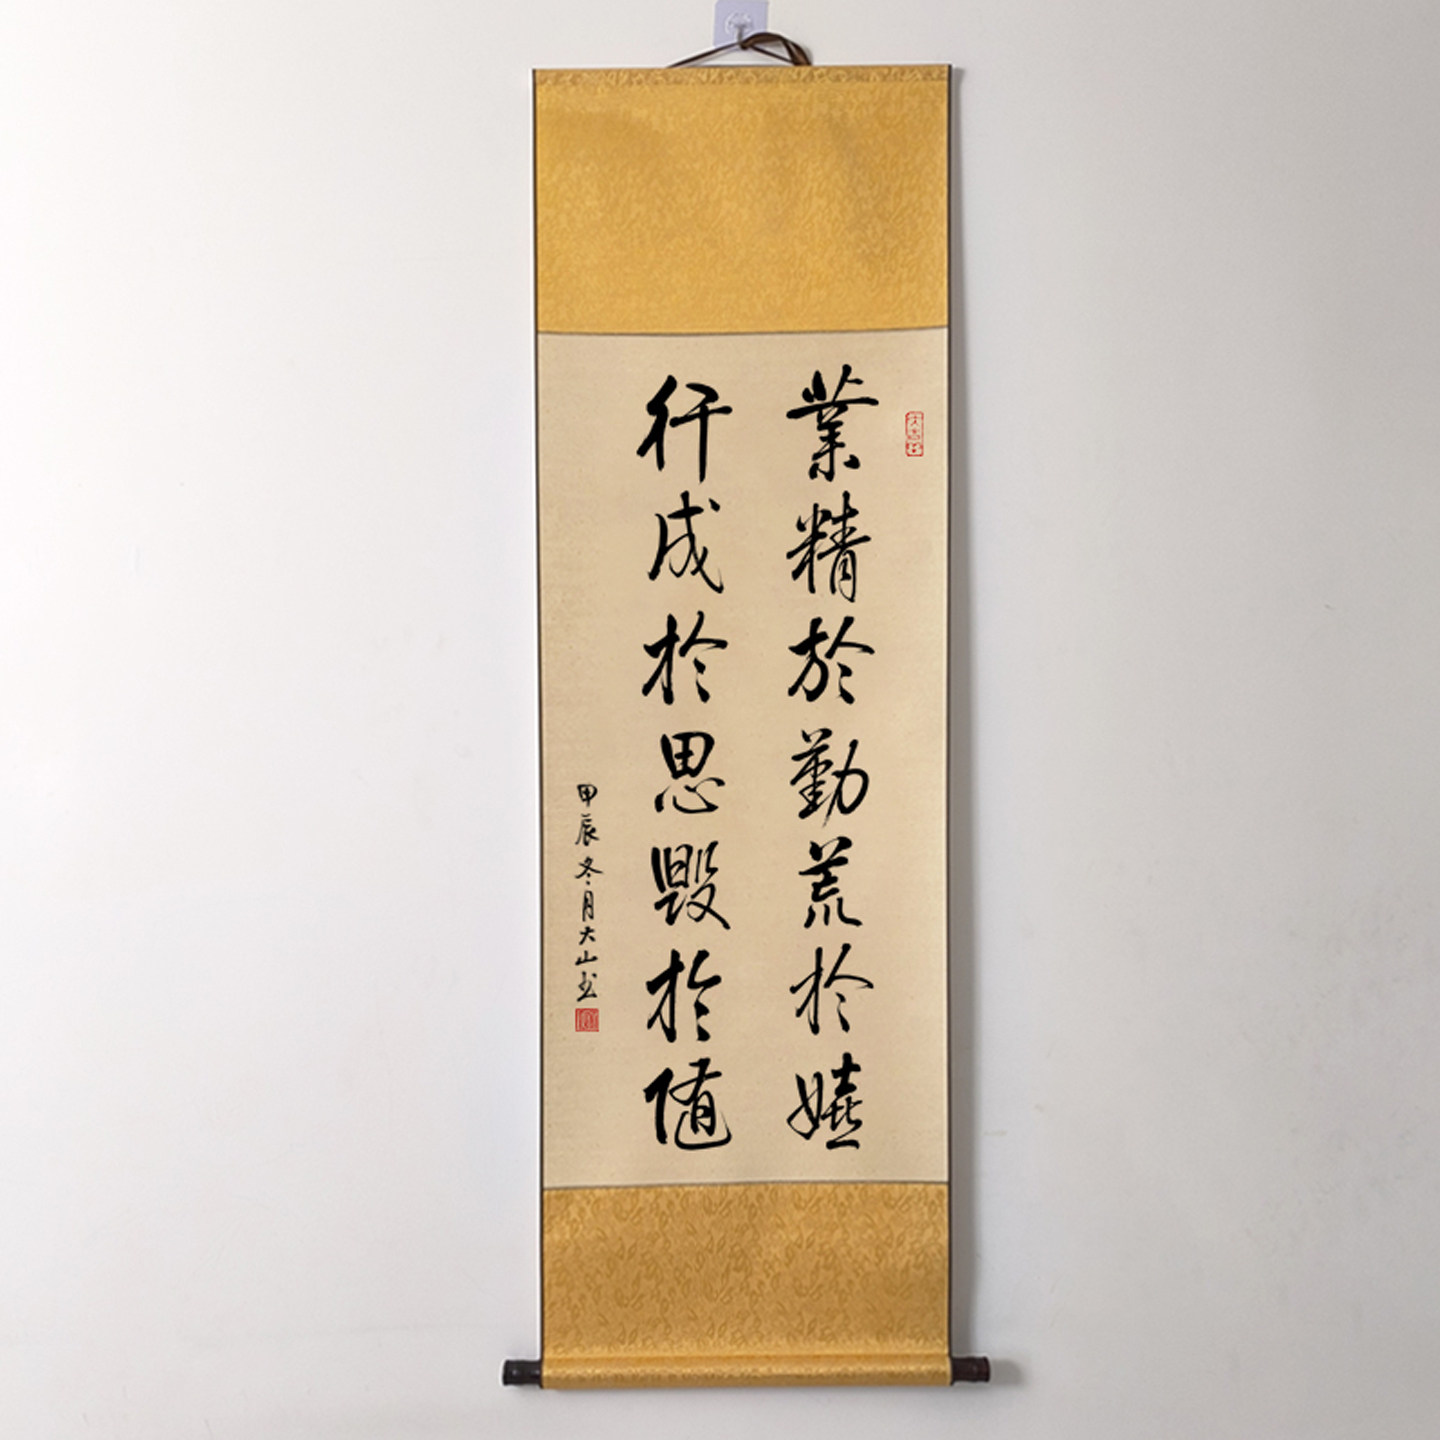 業精於勤荒於嬉
行成於思毀於随
甲辰冬月大山书